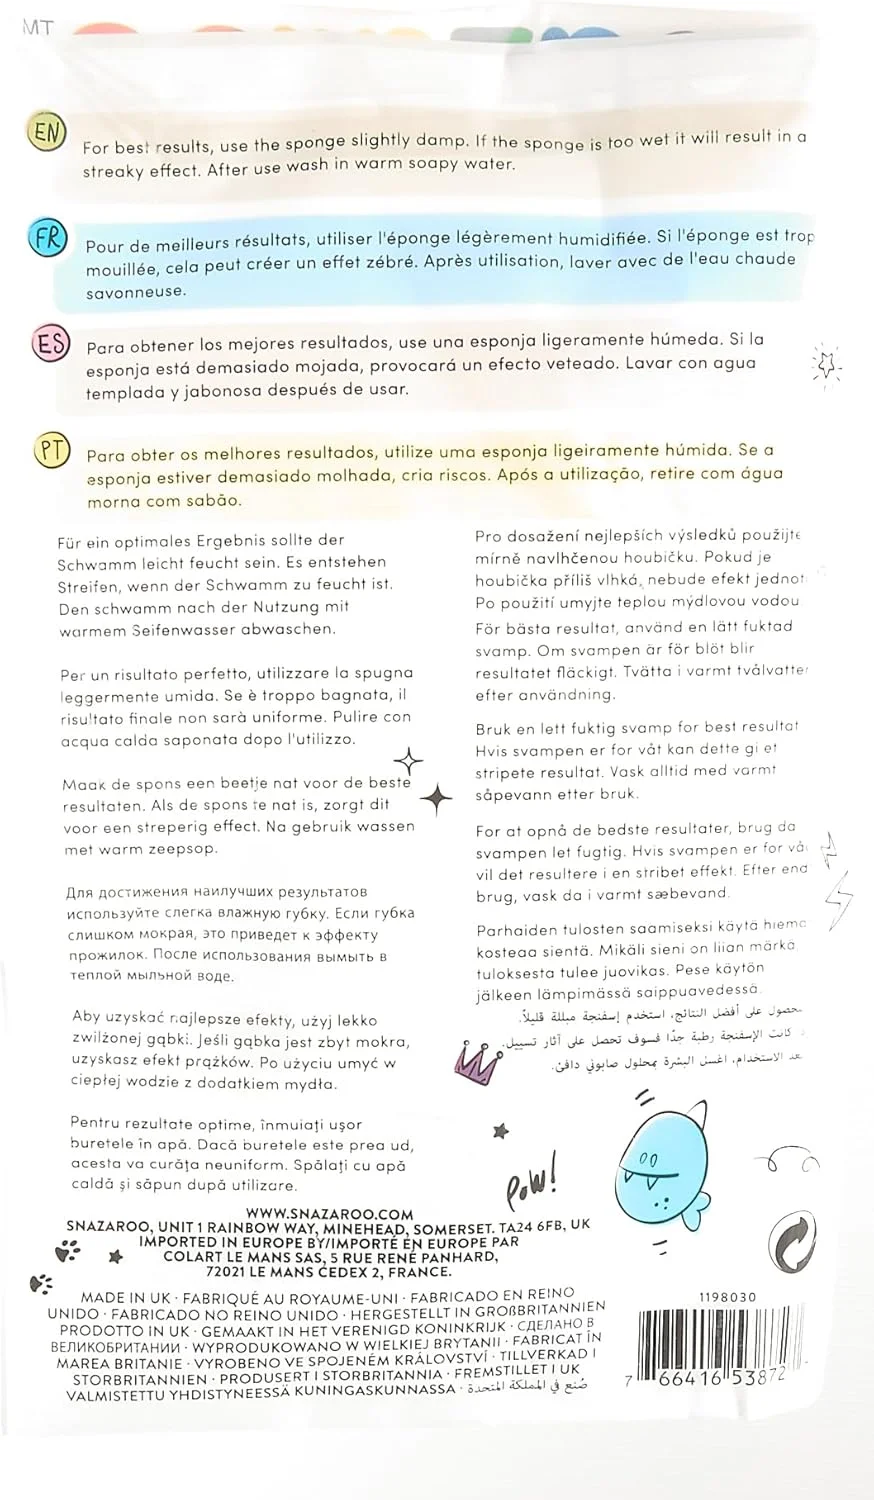 MT
EN
For best results, use the sponge slightly damp. If the sponge is too wet it will result in a
streaky effect. After use wash in warm soapy water.
FR
Pour de meilleurs résultats, utiliser l'éponge légèrement humidifiée. Si l'éponge est trop
mouillée, cela peut créer un effet zébré. Après utilisation, laver avec de l'eau chaude
savonneuse.
ES
Para obtener los mejores resultados, use una esponja ligeramente húmeda. Si la
esponja está demasiado mojada, provocará un efecto veteado. Lavar con agua
templada y jabonosa después de usar.
PT
Para obter os melhores resultados, utilize uma esponja ligeiramente húmida. Se a
esponja estiver demasiado molhada, cria riscos. Após a utilização, retire com água
morna com sabão.
Für ein optimales Ergebnis sollte der
Schwamm leicht feucht sein. Es entstehen
Streifen, wenn der Schwamm zu feucht ist.
Den schwamm nach der Nutzung mit
warmem Seifenwasser abwaschen.
Per un risultato perfetto, utilizzare la spugna
leggermente umida. Se è troppo bagnata, il
risultato finale non sarà uniforme. Pulire con
acqua calda saponata dopo l'utilizzo.
Maak de spons een beetje nat voor de beste
resultaten. Als de spons te nat is, zorgt dit
voor een streperig effect. Na gebruik wassen
met warm zeepsop.
Для достижения наилучших результатов
используйте слегка влажную губку. Если губка
слишком мокрая, это приведет к эффекту
прожилок. После использования вымыть в
теплой мыльной воде.
Aby uzyskać najlepsze efekty, użyj lekko
zwilżonej gąbki. Jeśli gąbka jest zbyt mokra,
uzyskasz efekt prążków. Po użyciu umyć w
ciepłej wodzie z dodatkiem mydła.
Pentru rezultate optime, înmuiați ușor
buretele în apă. Dacă buretele este prea ud,
acesta va curăța neuniform. Spălați cu apă
caldă și săpun după utilizare.
Pro dosažení nejlepších výsledků použijte
mírně navlhčenou houbičku. Pokud je
houbička příliš vlhká, nebude efekt jednot
Po použití umyjte teplou mýdlovou vodou
För bästa resultat, använd en lätt fuktad
svamp. Om svampen är för blöt blir
resultatet fläckigt. Tvätta i varmt tvålvatter
efter användning.
Bruk en lett fuktig svamp for best resultat
Hvis svampen er for våt kan dette gi et
stripete resultat. Vask alltid med varmt
såpevann etter bruk.
For at opnå de bedste resultater, brug da
svampen let fugtig. Hvis svampen er for vå
vil det resultere i en stribet effekt. Efter end
brug, vask da i varmt sæbevand.
Parhaiden tulosten saamiseksi käytä hiema
kosteaa sientä. Mikäli sieni on liian märkä
tuloksesta tulee juovikas. Pese käytön
jälkeen lämpimässä saippuavedessä.
حصول على أفضل النتائج، استخدم إسفنجة مبللة قليلاً.
كانت الإسفنجة رطبة جدًا فسوف تحصل على آثار تسييل.
عد الاستخدام، اغسل البشرة بمحلول صابوني دافئ.
Pow!
WWW.SNAZAROO.COM
SNAZAROO, UNIT 1 RAINBOW WAY, MINEHEAD, SOMERSET. TA24 6FB, UK
IMPORTED IN EUROPE BY/IMPORTÉ EN EUROPE PAR
COLART LE MANS SAS, 5 RUE RENÉ PANHARD,
72021 LE MANS CEDEX 2, FRANCE.
MADE IN UK · FABRIQUÉ AU ROYAUME-UNI · FABRICADO EN REINO
UNIDO · FABRICADO NO REINO UNIDO · HERGESTELLT IN GROßBRITANNIEN
PRODOTTO IN UK · GEMAAKT IN HET VERENIGD KONINKRIJK · СДЕЛАНО В
ВЕЛИКОБРИТАНИИ · WYPRODUKOWANO W WIELKIEJ BRYTANII · FABRICAT ÎN
MAREA BRITANIE · VYROBENO VE SPOJENÉM KRÁLOVSTVÍ · TILLVERKAD I
STORBRITANNIEN · PRODUSERT I STORBRITANNIA · FREMSTILLET I UK
VALMISTETTU YHDISTYNEESSÄ KUNINGASKUNNASSA · صُنع في المملكة المتحدة
1198030
7 66416 53872